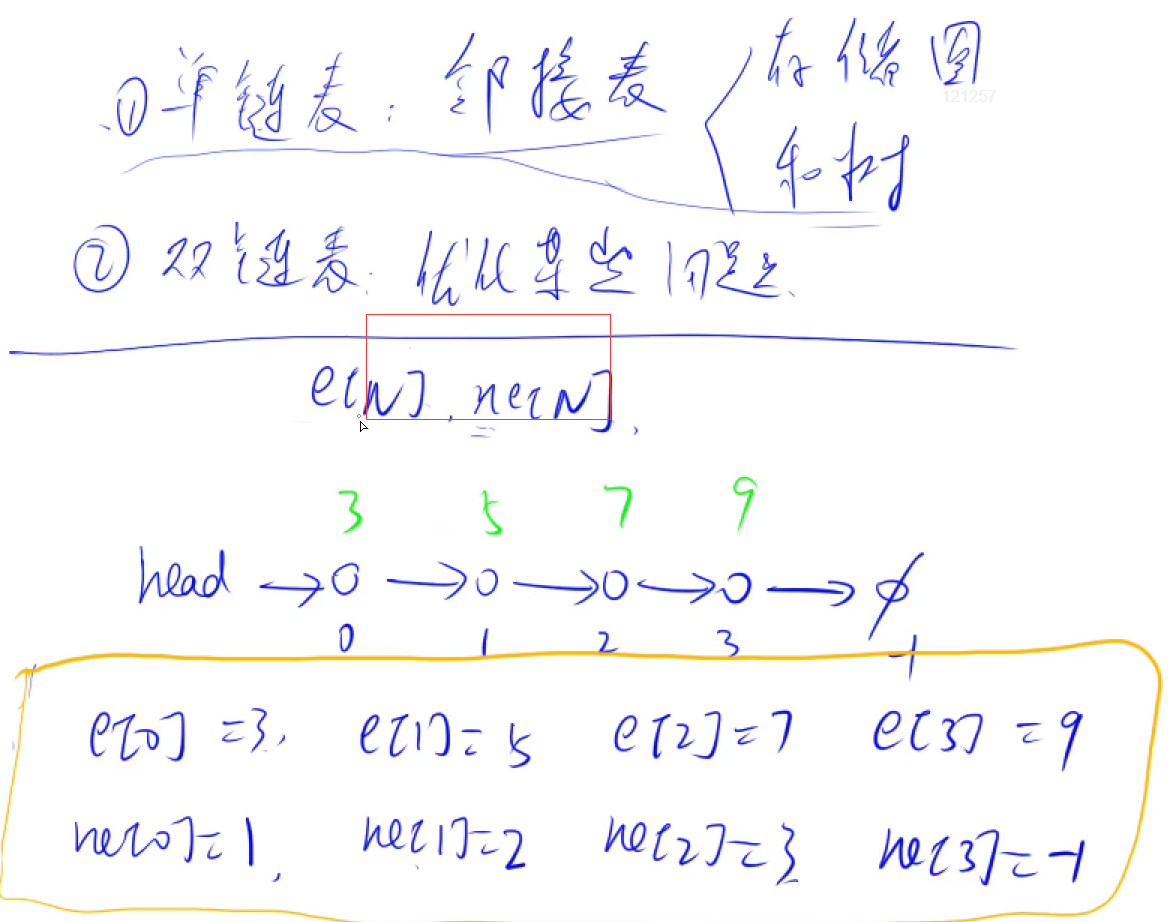 ①单链表：邻接表 存储图
121257
和树
②双链表：优化某些问题.
e[N], ne[N],
3 5 7 9
head → o → o → o → o → ∅
0 1 2 3 -1
e[0]=3, e[1]=5 e[2]=7 e[3]=9
ne[0]=1, ne[1]=2 ne[2]=3 ne[3]=-1